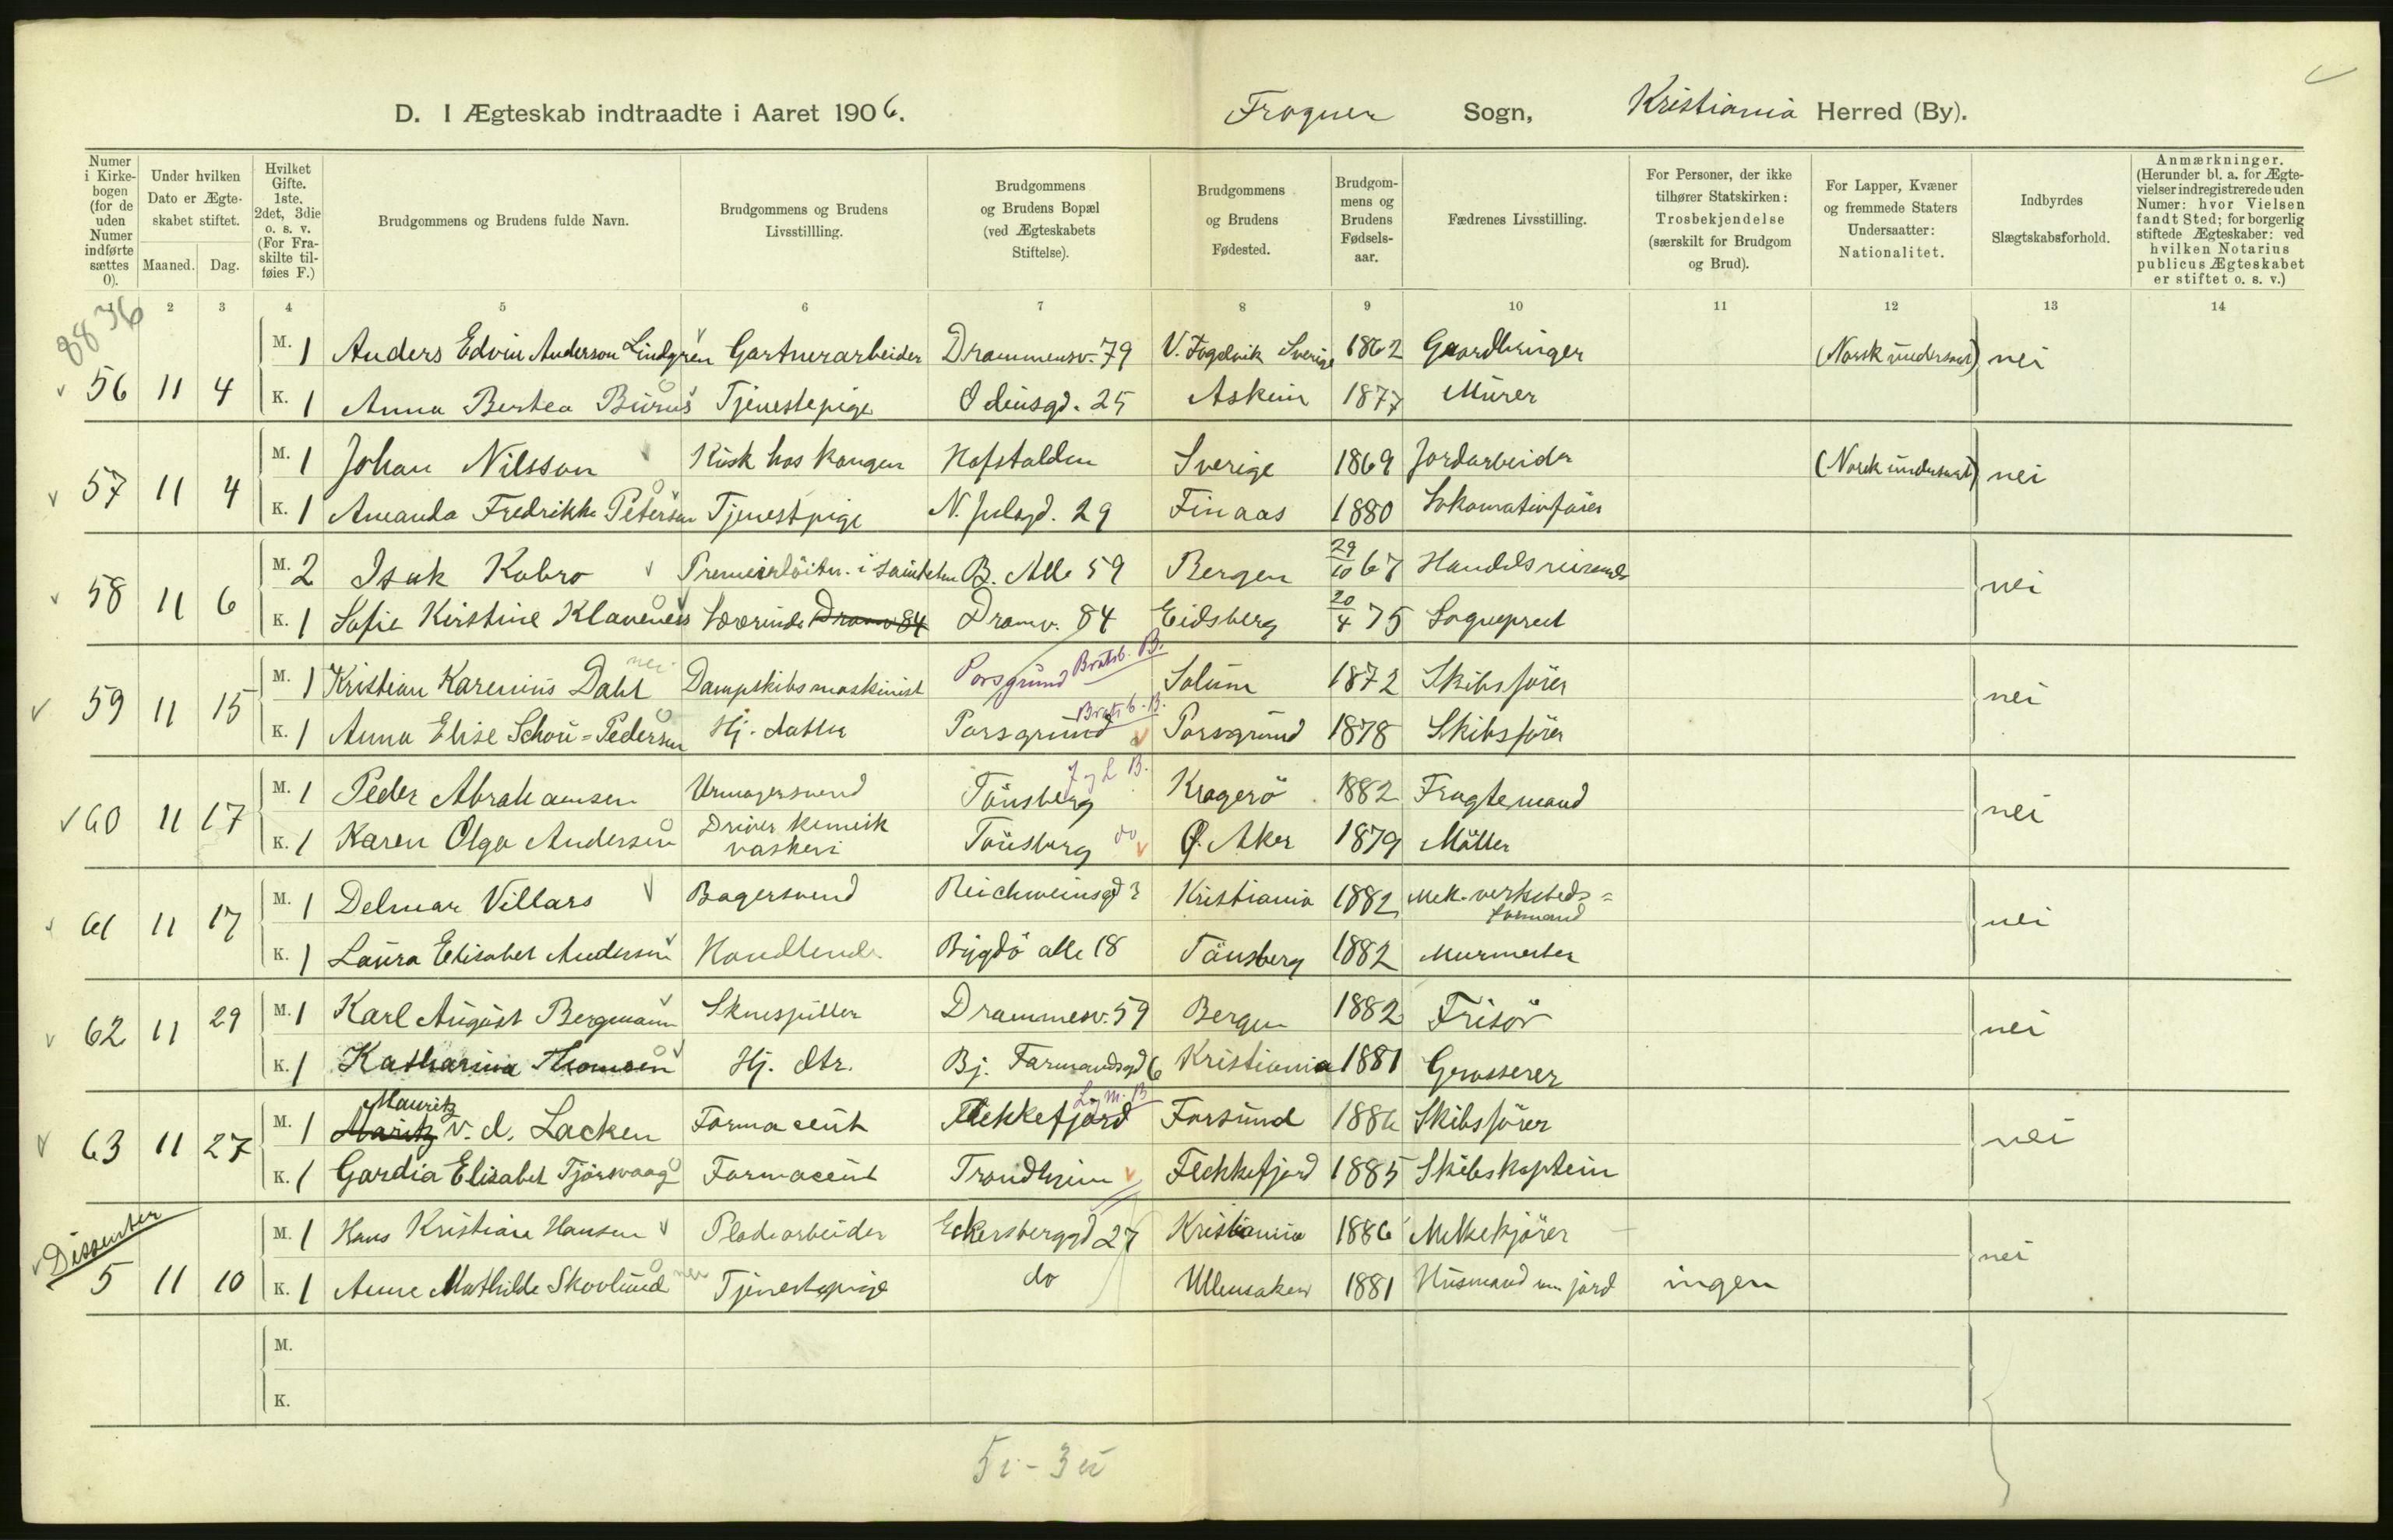 D. I Ægteskab indtraadte i Aaret 1906. Frogner Sogn, Kristiania Herred (By).
Numer i Kirke-bogen (for de uden Numer indførte sættes 0).
Under hvilken Dato er Ægte-skabet stiftet.
Maaned. Dag.
Hvilket Gifte. 1ste, 2det, 3die o. s. v. (For Fra-skilte til-føies F.)
Brudgommens og Brudens fulde Navn.
Brudgommens og Brudens Livsstillling.
Brudgommens og Brudens Bopæl (ved Ægteskabets Stiftelse).
Brudgommens og Brudens Fødested.
Brudgom-mens og Brudens Fødsels-aar.
Fædrenes Livsstilling.
For Personer, der ikke tilhører Statskirken: Trosbekjendelse (særskilt for Brudgom og Brud).
For Lapper, Kvæner og fremmede Staters Undersaatter: Nationalitet.
Indbyrdes Slægtskabsforhold.
Anmærkninger. (Herunder bl. a. for Ægte-vielser indregistrerede uden Numer: hvor Vielsen fandt Sted; for borgerlig stiftede Ægteskaber: ved hvilken Notarius publicus Ægteskabet er stiftet o. s. v.)
1 2 3 4 5 6 7 8 9 10 11 12 13 14
8836
M. 1 Anders Edvin Anderson Lindgren Gartnerarbeider Drammensv. 79 V. Fogelvik Sverige 1862 Gaardbruger (Norsk undersaat) nei
56 11 4 K. 1 Anna Berthea Burus Tjenestepige Odinsgd. 25 Askim 1877 Murer
M. 1 Johan Nilsson Kusk hos kongen Hofstalden Sverige 1869 Jordarbeider (Norsk undersaat) nei
57 11 4 K. 1 Amanda Fredrikke Petersen Tjenestpige N. Julsgd. 29 Finaas 1880 Lokomotivfører
M. 2 Isak Kobro Premierløitn. i saniteten B. Alle 59 Bergen 29/10 67 Handelsreisende nei
58 11 6 K. 1 Sofie Kirstine Klaveness Lærerinde Dramv 84 Dramv. 84 Eidsberg 20/4 75 Sogneprest
M. 1 Kristian Karenius Dahl nei Dampskibsmaskinist Porsgrund Bratsb. B. Solum 1872 Skibsfører nei
59 11 15 K. 1 Anna Elise Schou=Pedersen Hj. datter Porsgrund Bratsb. B. Porsgrund 1878 Skibsfører
M. 1 Peder Abrahamsen Urmagersvend Tønsberg J og L B. Kragerö 1882 Fragtemand nei
60 11 17 K. 1 Karen Olga Andersen Driver kemisk vaskeri Tønsberg do Ø. Aker 1879 Møller
M. 1 Delmar Villars Bagersvend Reichweinsgd 3 Kristiania 1882 Mek. verksteds=formand nei
61 11 17 K. 1 Laura Elisabet Andersen Handlende Bygdö alle 18 Tønsberg 1882 Murmester
M. 1 Karl August Bergmann Skuespiller Drammesv. 59 Bergen 1882 Frisør nei
62 11 29 K. 1 Katharina Thomsen Hj. dtr. Bj. Farmandsgd 6 Kristiania 1881 Grosserer
Mauritz
M. 1 Maritz v. d. Lacken Farmaceut Flekkefjord L og M. B Farsund 1886 Skibsfører nei
63 11 27 K. 1 Gardia Elisabet Tjørsvaag Farmaceut Trondhjem Flekkefjord 1885 Skibskaptein
Dissenter
M. 1 Hans Kristian Hansen Pladearbeider Eckersberggd 27 Kristiania 1886 Melkekjører nei
5 11 10 K. 1 Anne Mathilde Skovlund nei Tjenestepige do Ullensaker 1881 Husmand m jord ingen
M.
K.
5 i - 3 u